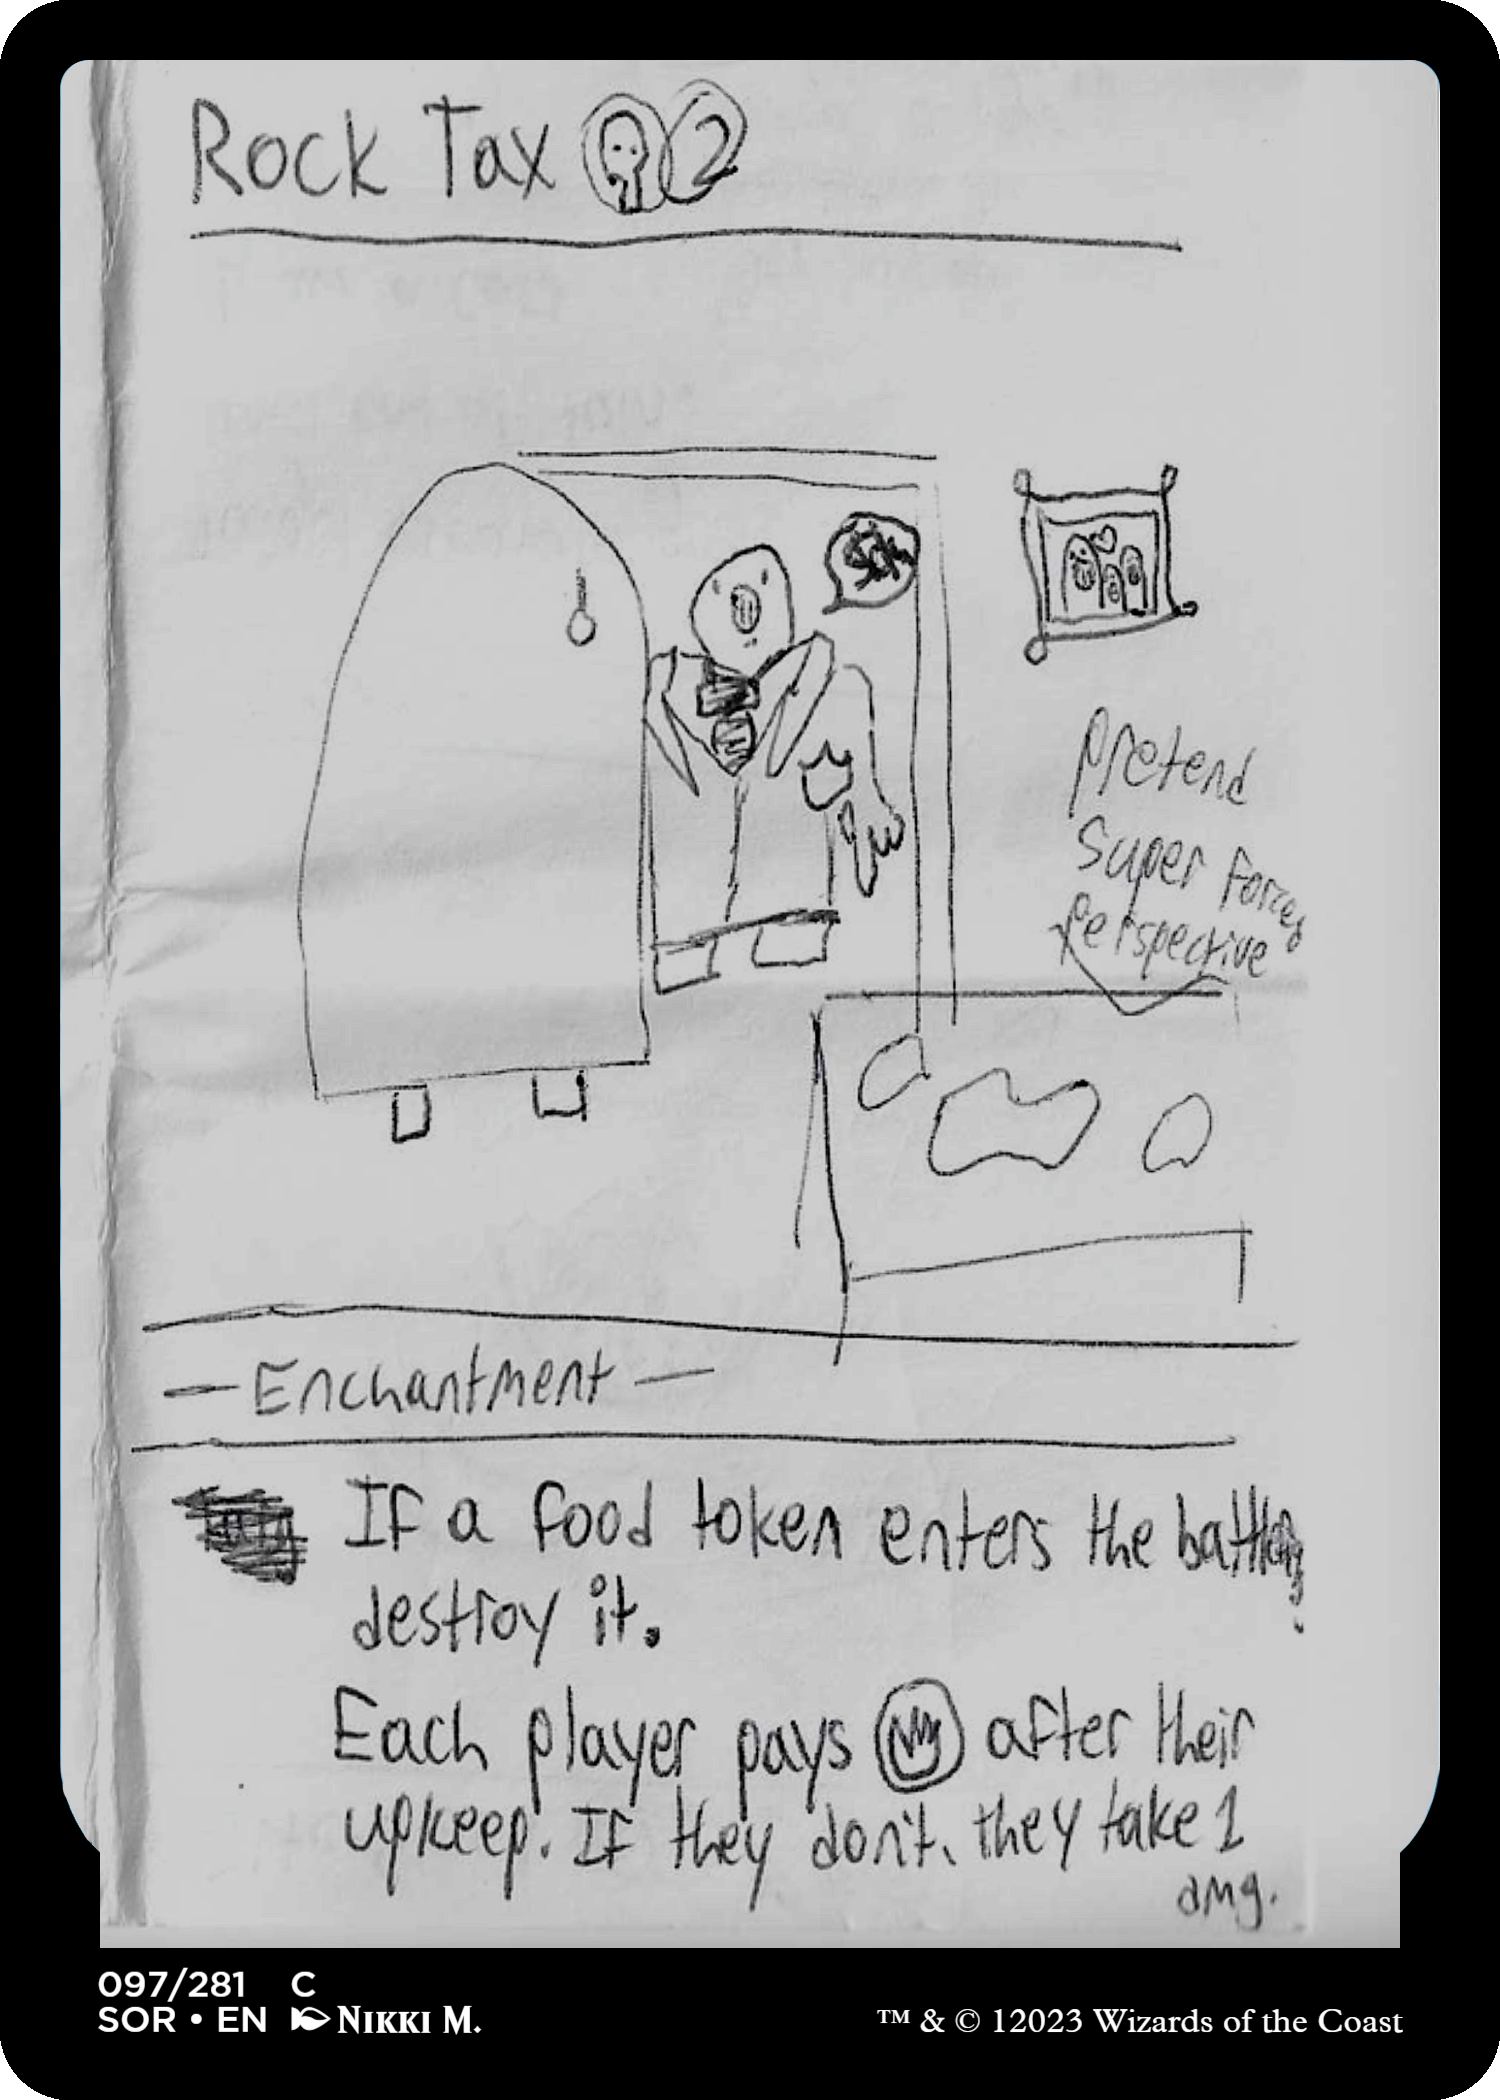 Rock Tax 2
Pretend
Super Forced
Perspective
— Enchantment —
If a food token enters the
destroy it.
Each player pays after their
upkeep. If they don't, they take 1
dmg.
097/281 C
SOR • EN NIKKI M.
™ & © 12023 Wizards of the Coast